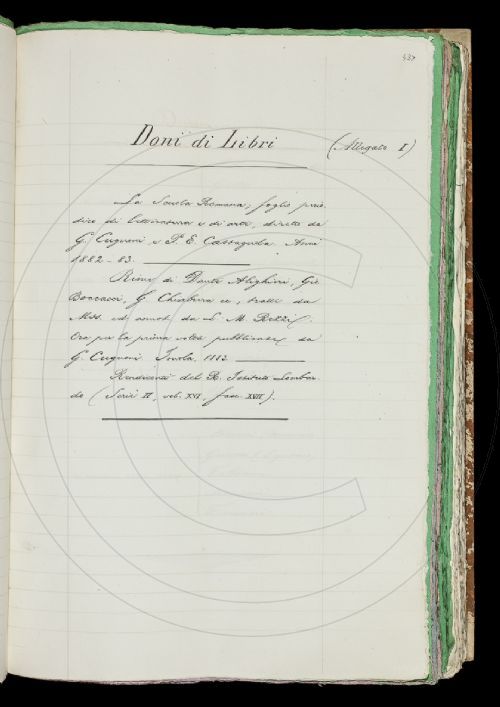 437
Doni di Libri (Allegato I)
La Scuola Romana, foglio perio-
dico di letteratura e di arte, diretto da
G. Cugnoni e P. E. Castagnola. Anni
1882-83.
Rime di Dante Alighieri, Gio
Boccacci, G. Chiabrera ec, tratte da
Mss. ed annot. da L. M. Rezzi.
Ora per la prima volta pubblicate da
G. Cugnoni. Imola, 1883.
Rendiconti del R. Istituto Lombar-
do (Serie II, vol. XVI, fasc. XVII).